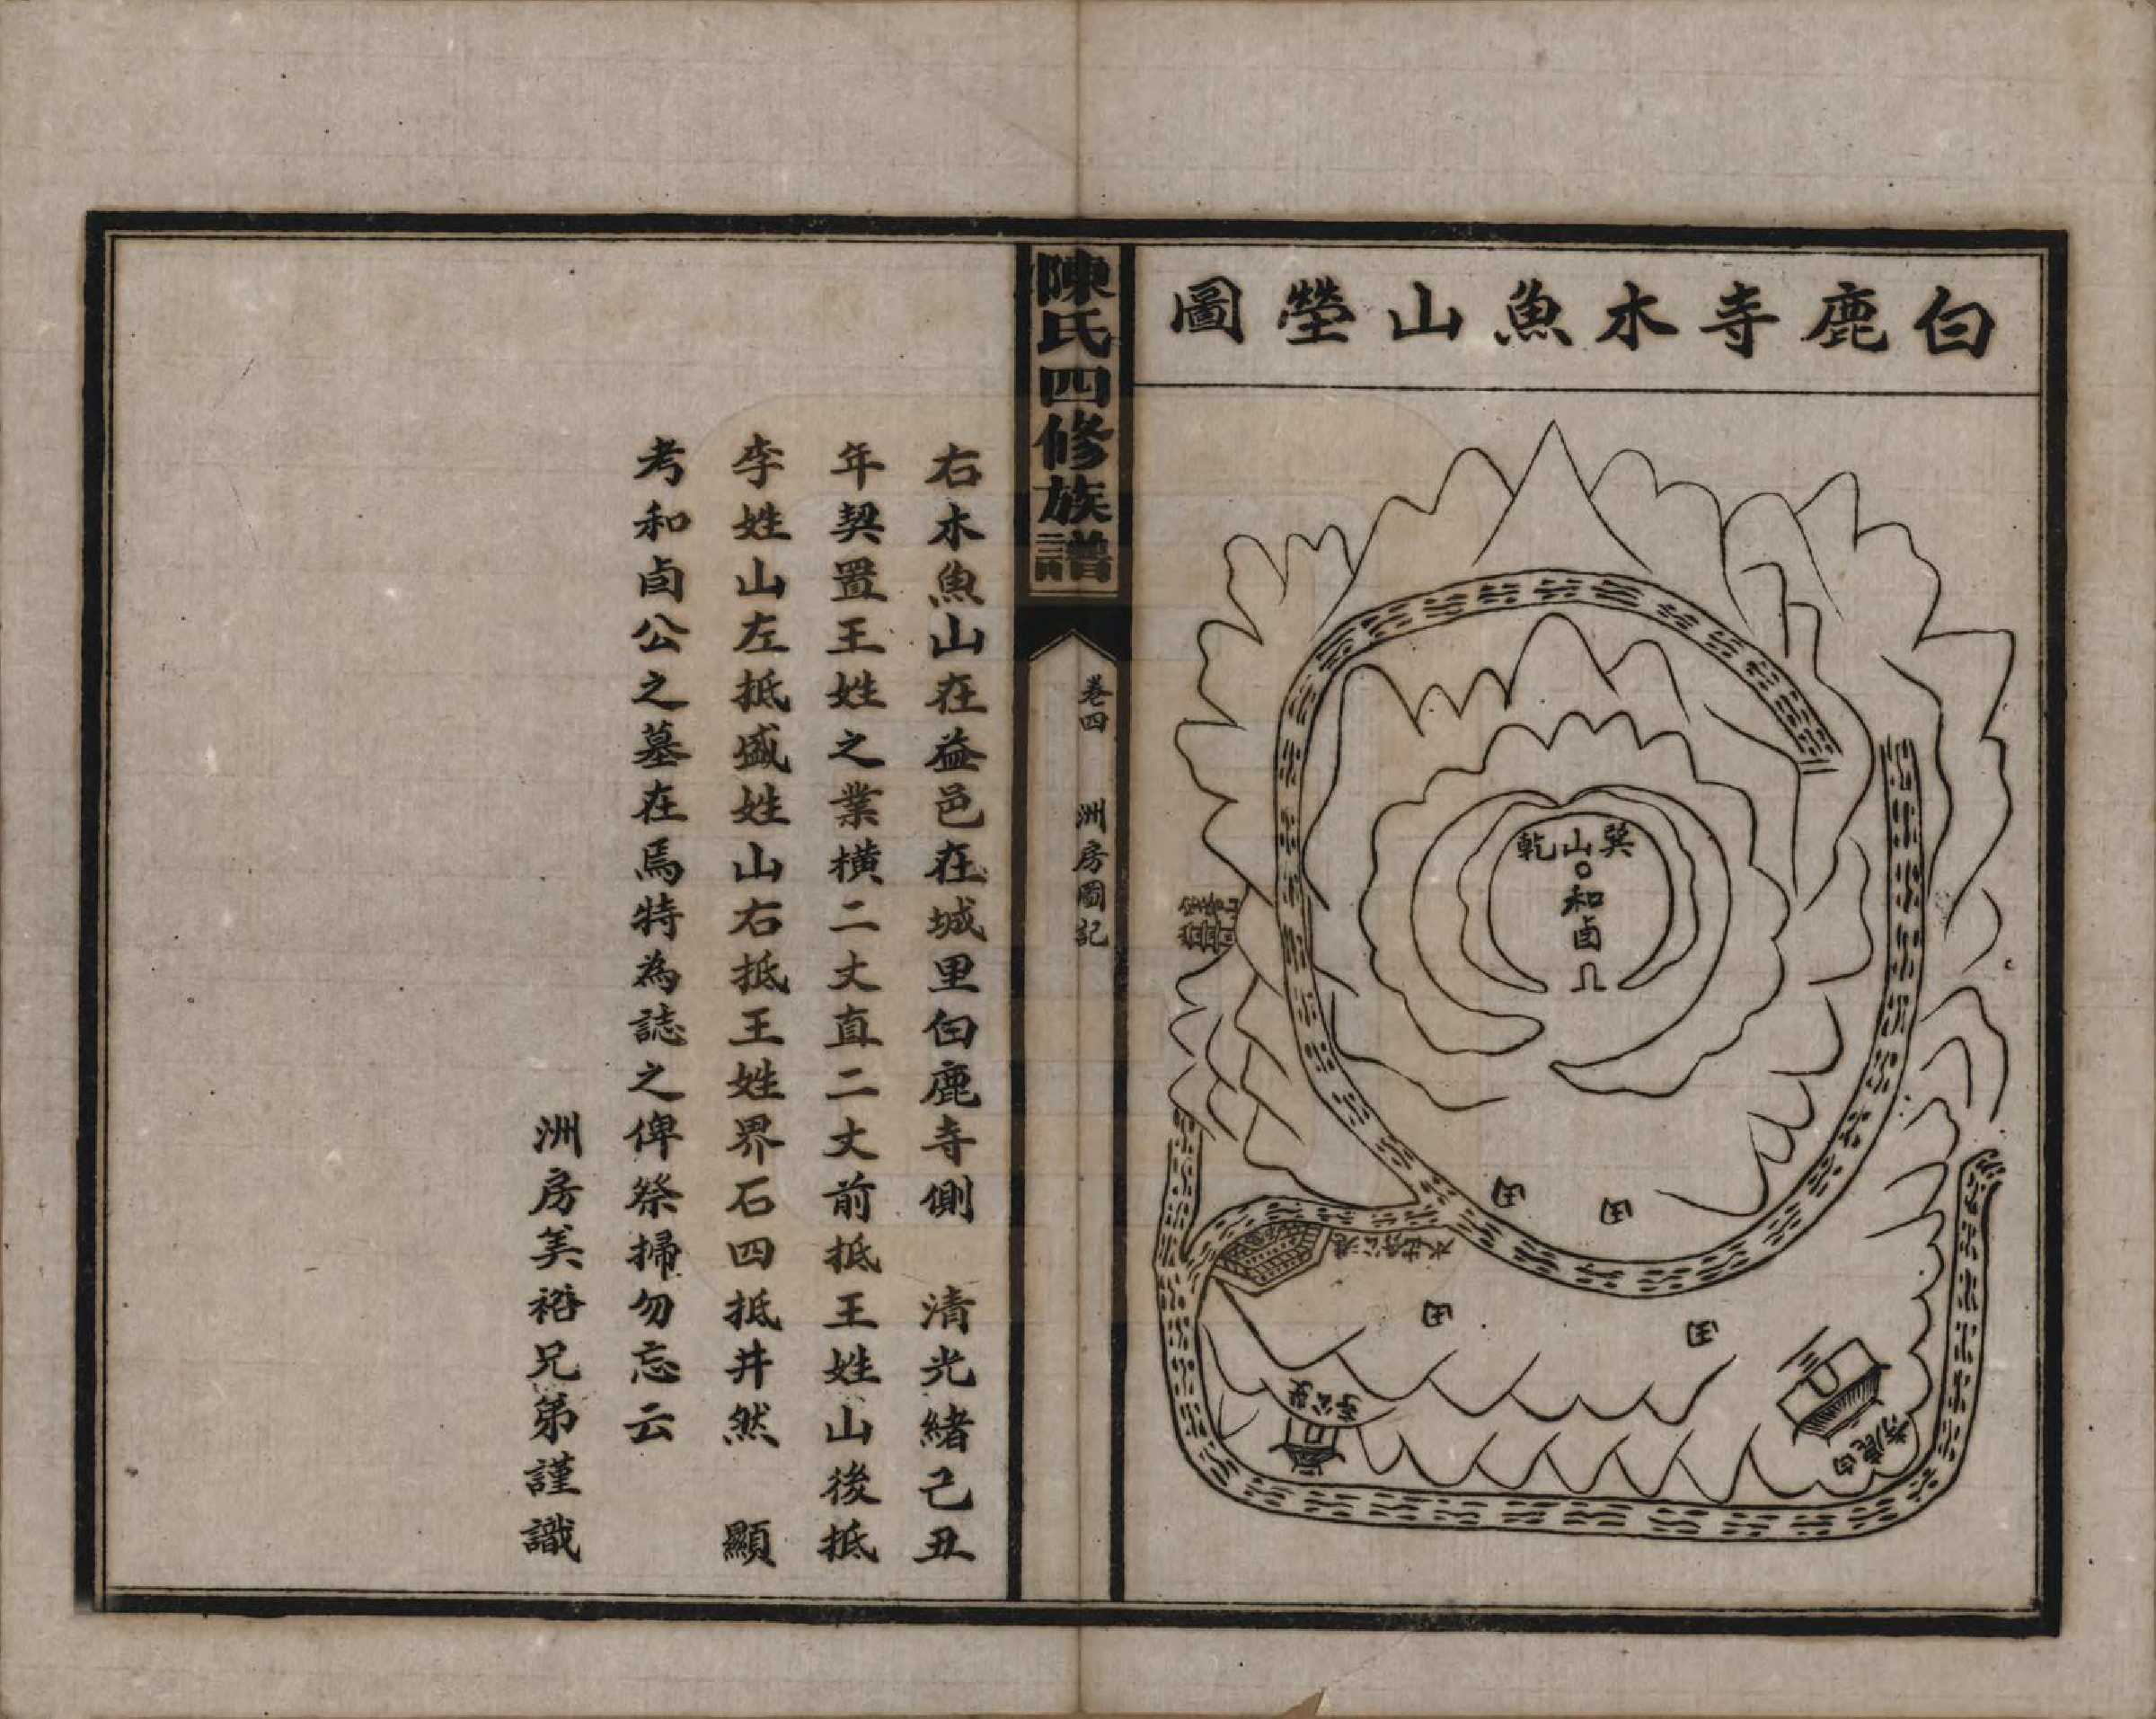 白鹿寺木魚山塋圖
乾山巽
和卣
田
田
田
田
白鹿寺
陳氏四修族譜
卷四
洲房圖記
右木魚山在益邑在城里白鹿寺側　清光緒己丑
年契置王姓之業橫二丈直二丈前抵王姓山後抵
李姓山左抵盛姓山右抵王姓界石四抵井然　顯
考和卣公之墓在焉特為誌之俾祭掃勿忘云
洲房美裕兄弟謹識